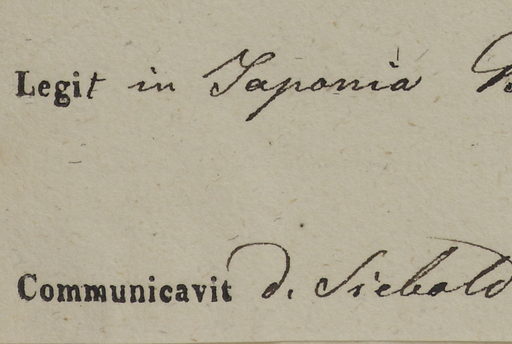 Legit in Japonia
Communicavit d. Siebold